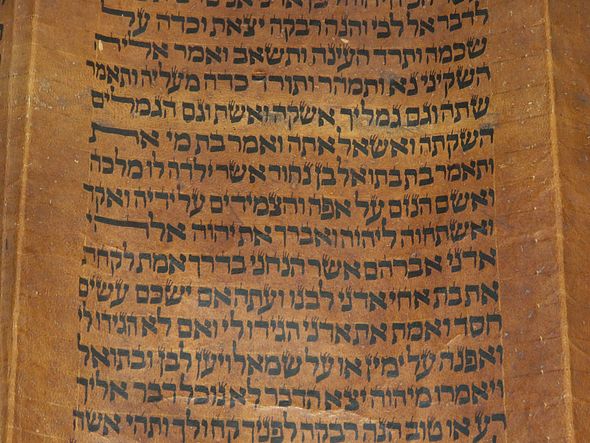 לדבר אל לבי והנה רבקה יצאת וכדה על
שכמה ותרד העינה ותשאב ואמר אליה
השקיני נא ותמהר ותורד כדה מעליה ותאמר
שתה וגם גמליך אשקה ואשת וגם הגמלים
השקתה ואשאל אתה ואמר בת מי את
ותאמר בת בתואל בן נחור אשר ילדה לו מלכה
ואשם הנזם על אפה והצמידים על ידיה ואקד
ואשתחוה ליהוה ואברך את יהוה אלהי
אדני אברהם אשר הנחני בדרך אמת לקחת
את בת אחי אדני לבנו ועתה אם ישכם עשים
חסד ואמת את אדני הגידו לי ואם לא הגידו לי
ואפנה על ימין או על שמאל ויען לבן ובתואל
ויאמרו מיהוה יצא הדבר לא נוכל דבר אליך
רע או טוב הנה רבקה לפניך קח ולך ותהי אשה